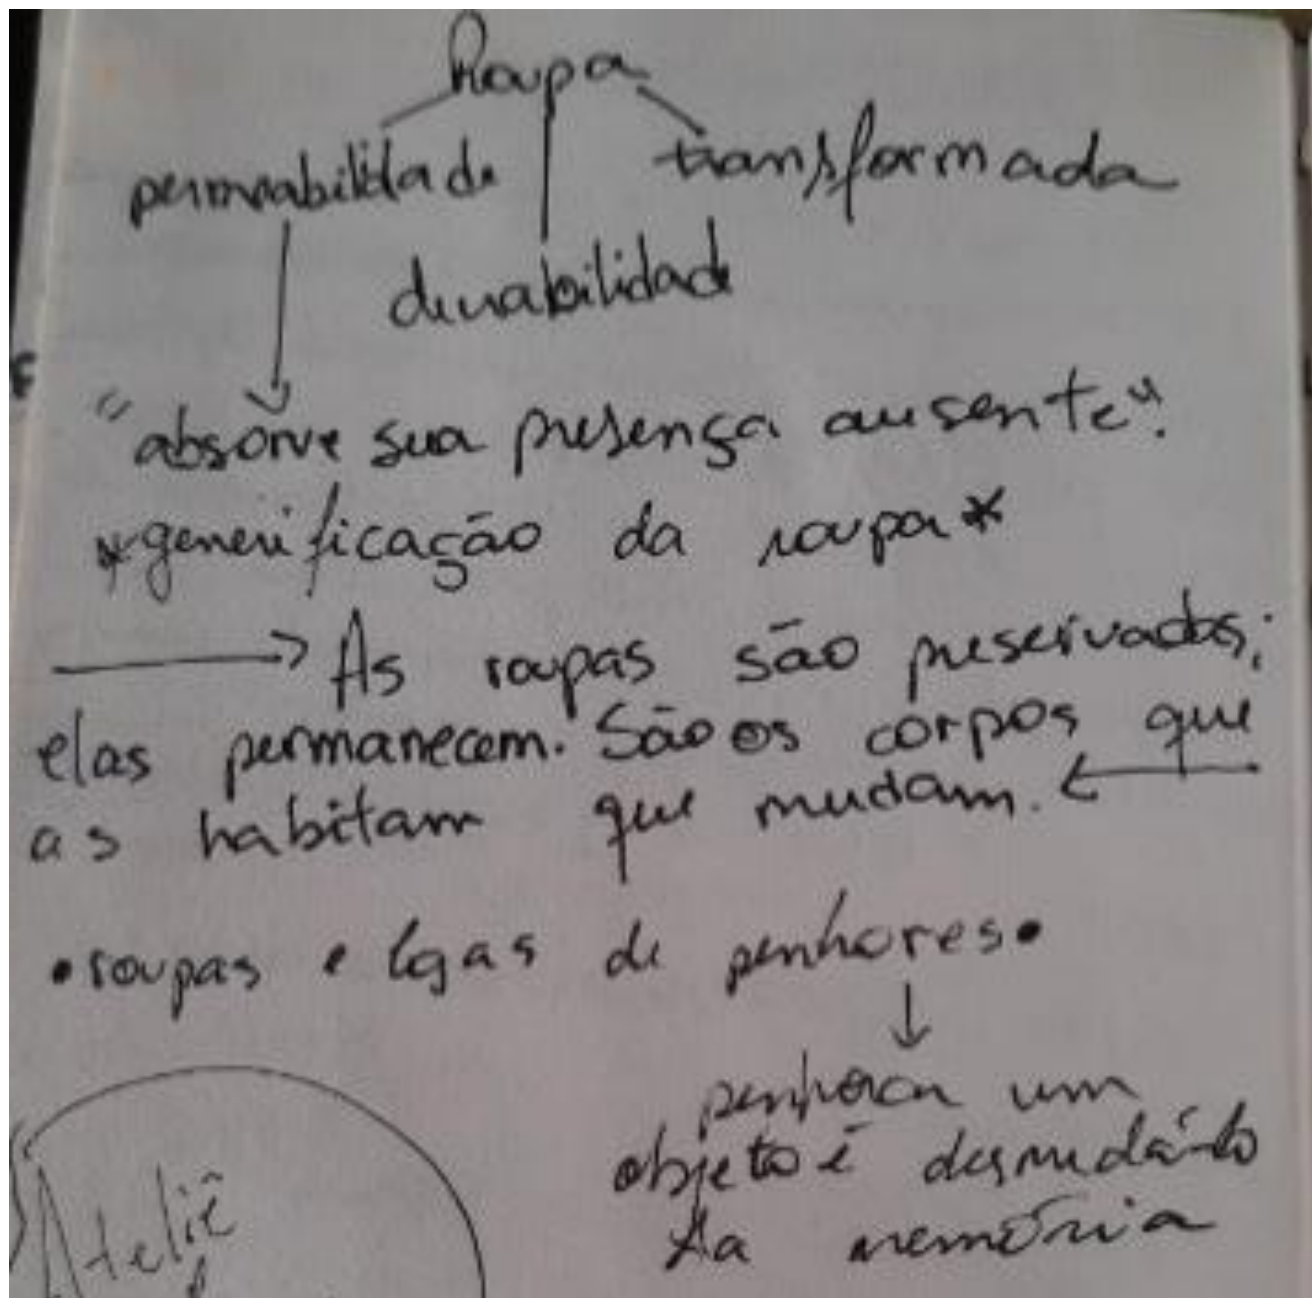 Roupa
permeabilidade transformada
durabilidade
"absorve sua presença ausente".
*generificação da roupa*
→ As roupas são preservadas;
elas permanecem. São os corpos que
as habitam que mudam. ←
•roupas e lojas de penhores•
↓
penhorar um
objeto é desnudá-lo
da memória
Ateliê